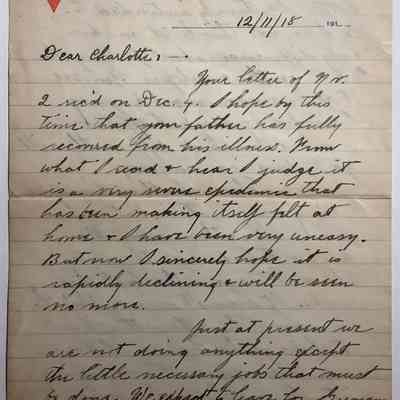 12/11/18 191
Dear Charlotte, —.
Your letter of Nov.
2 rec'd on Dec. 4. I hope by this
time that your father has fully
recovered from his illness. From
what I read & hear I judge it
is a very severe epidemic that
has been making itself felt at
home & I have been very uneasy.
But now I sincerely hope it is
rapidly declining & will be seen
no more.
Just at present we
are not doing anything except
the little necessary jobs that must
be done. We expect to leave for